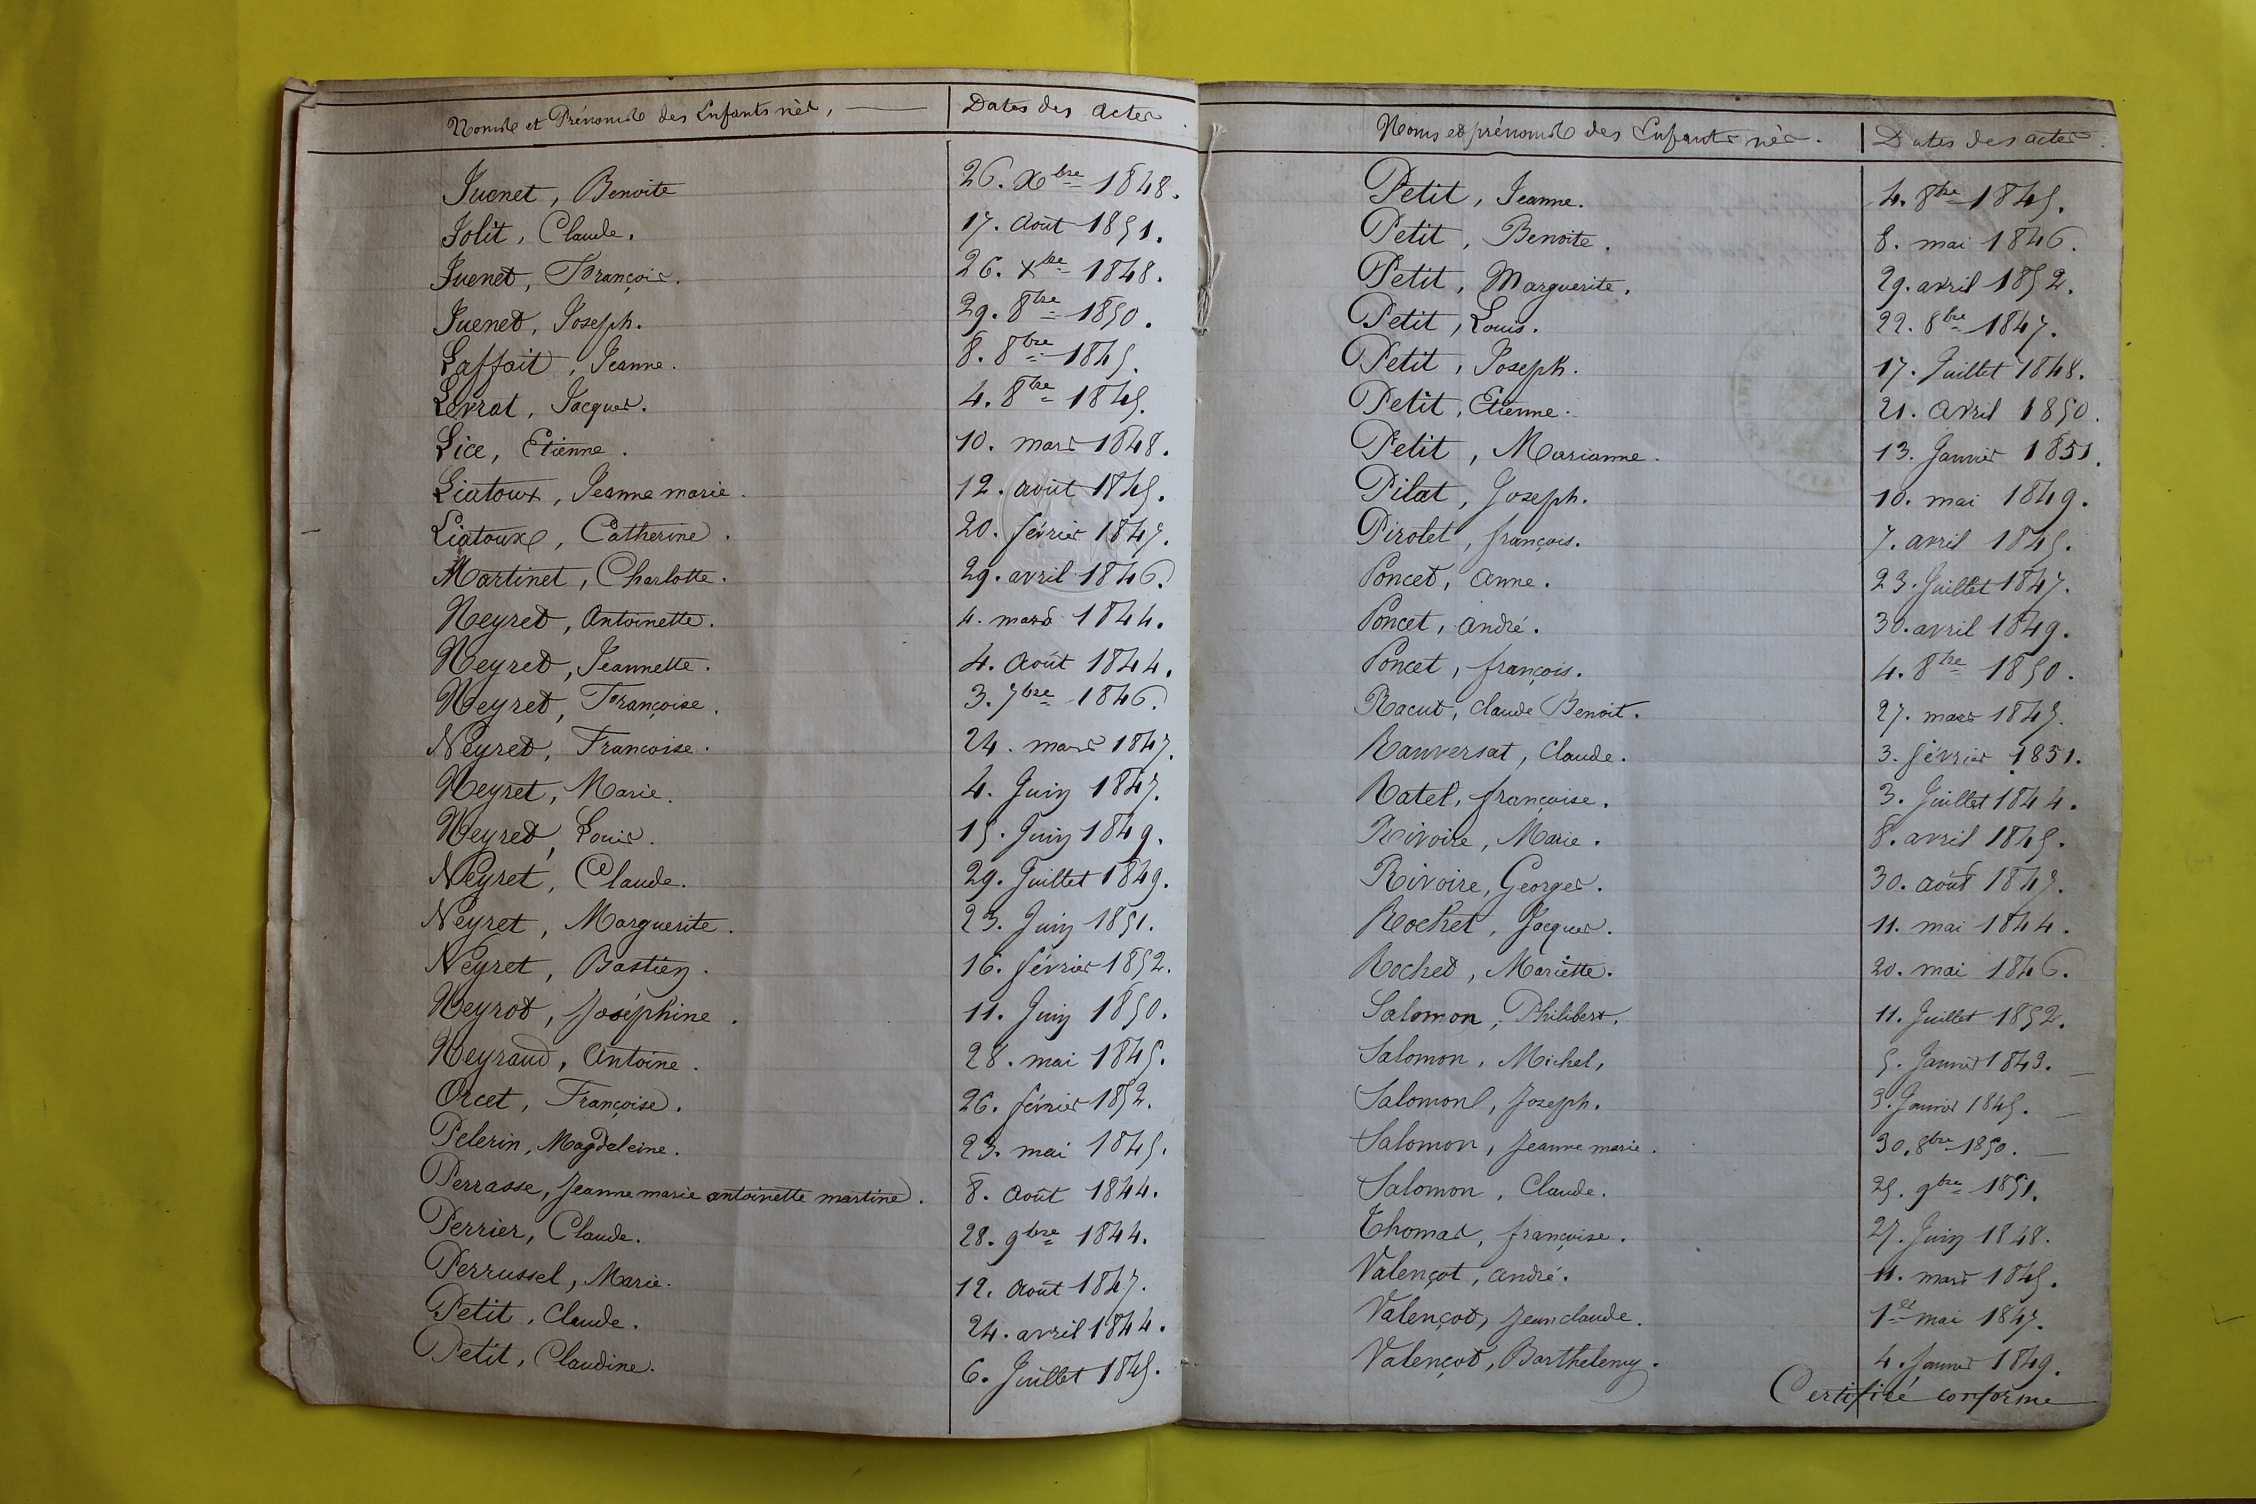 Noms et Prénoms des Enfants nés, Dates des actes
Juenet, Benoite 26. Xbre 1848.
Jolit, Claude. 17. Août 1851.
Juenet, François. 26. Xbre 1848.
Juenet, Joseph. 29. 8bre 1850.
Laffait, Jeanne. 8. 8bre 1845.
Levrat, Jacques. 4. 8bre 1845.
Lice, Etienne. 10. mars 1848.
Liatoux, Jeanne marie. 12. août 1845.
Liatoux, Catherine. 20. février 1847.
Martinet, Charlotte. 29. avril 1846.
Neyret, Antoinette. 4. mars 1844.
Neyret, Jeannette. 4. Août 1844.
Neyret, Françoise. 3. 7bre 1846.
Neyret, Francoise. 24. mars 1847.
Neyret, Marie. 4. Juin 1847.
Neyret, Louis. 15. Juin 1849.
Neyret, Claude. 29. Juillet 1849.
Neyret, Marguerite. 23. Juin 1851.
Neyret, Bastien. 16. février 1852.
Neyrot, Joséphine. 11. Juin 1850.
Neyraud, Antoine. 28. mai 1845.
Orcet, Françoise. 26. février 1852.
Pelerin, Magdeleine. 23. mai 1845.
Perrasse, Jeanne marie antoinette martine. 8. Août 1844.
Perrier, Claude. 28. 9bre 1844.
Perrussel, Marie. 12. Août 1847.
Petit, Claude. 24. avril 1844.
Petit, Claudine. 6. Juillet 1845.
Noms et prénoms des Enfants nés. Dates des actes.
Petit, Jeanne. 4. 8bre 1845.
Petit, Benoite. 8. mai 1846.
Petit, Marguerite. 29. avril 1852.
Petit, Louis. 22. 8bre 1847.
Petit, Joseph. 17. Juillet 1848.
Petit, Etienne. 21. Avril 1850.
Petit, Marianne. 13. Janvier 1851.
Pilat, Joseph. 10. mai 1849.
Pirolet, françois. 7. avril 1845.
Poncet, Anne. 23. Juillet 1847.
Poncet, André. 30. avril 1849.
Poncet, françois. 4. 8bre 1850.
Racut, Claude Benoit. 27. mars 1845.
Rauversat, Claude. 3. février 1851.
Ratel, françoise. 3. Juillet 1844.
Rivoire, Marie. 8. avril 1845.
Rivoire, Georges. 30. août 1847.
Rochet, Jacques. 11. mai 1844.
Rochet, Mariette. 20. mai 1846.
Salomon, Philibert. 11. Juillet 1852.
Salomon, Michel, 5. Janvier 1843.
Salomon, Joseph. Janvier 1845.
Salomon, Jeanne marie. 30. 8bre 1850.
Salomon, Claude. 25. 9bre 1851.
Thomas, françoise. 27. Juin 1848.
Valençot, André. 11. mars 1845.
Valençot, Jean claude. 1er mai 1847.
Valençot, Barthelemy. 4. Janvier 1849.
Certifié conforme